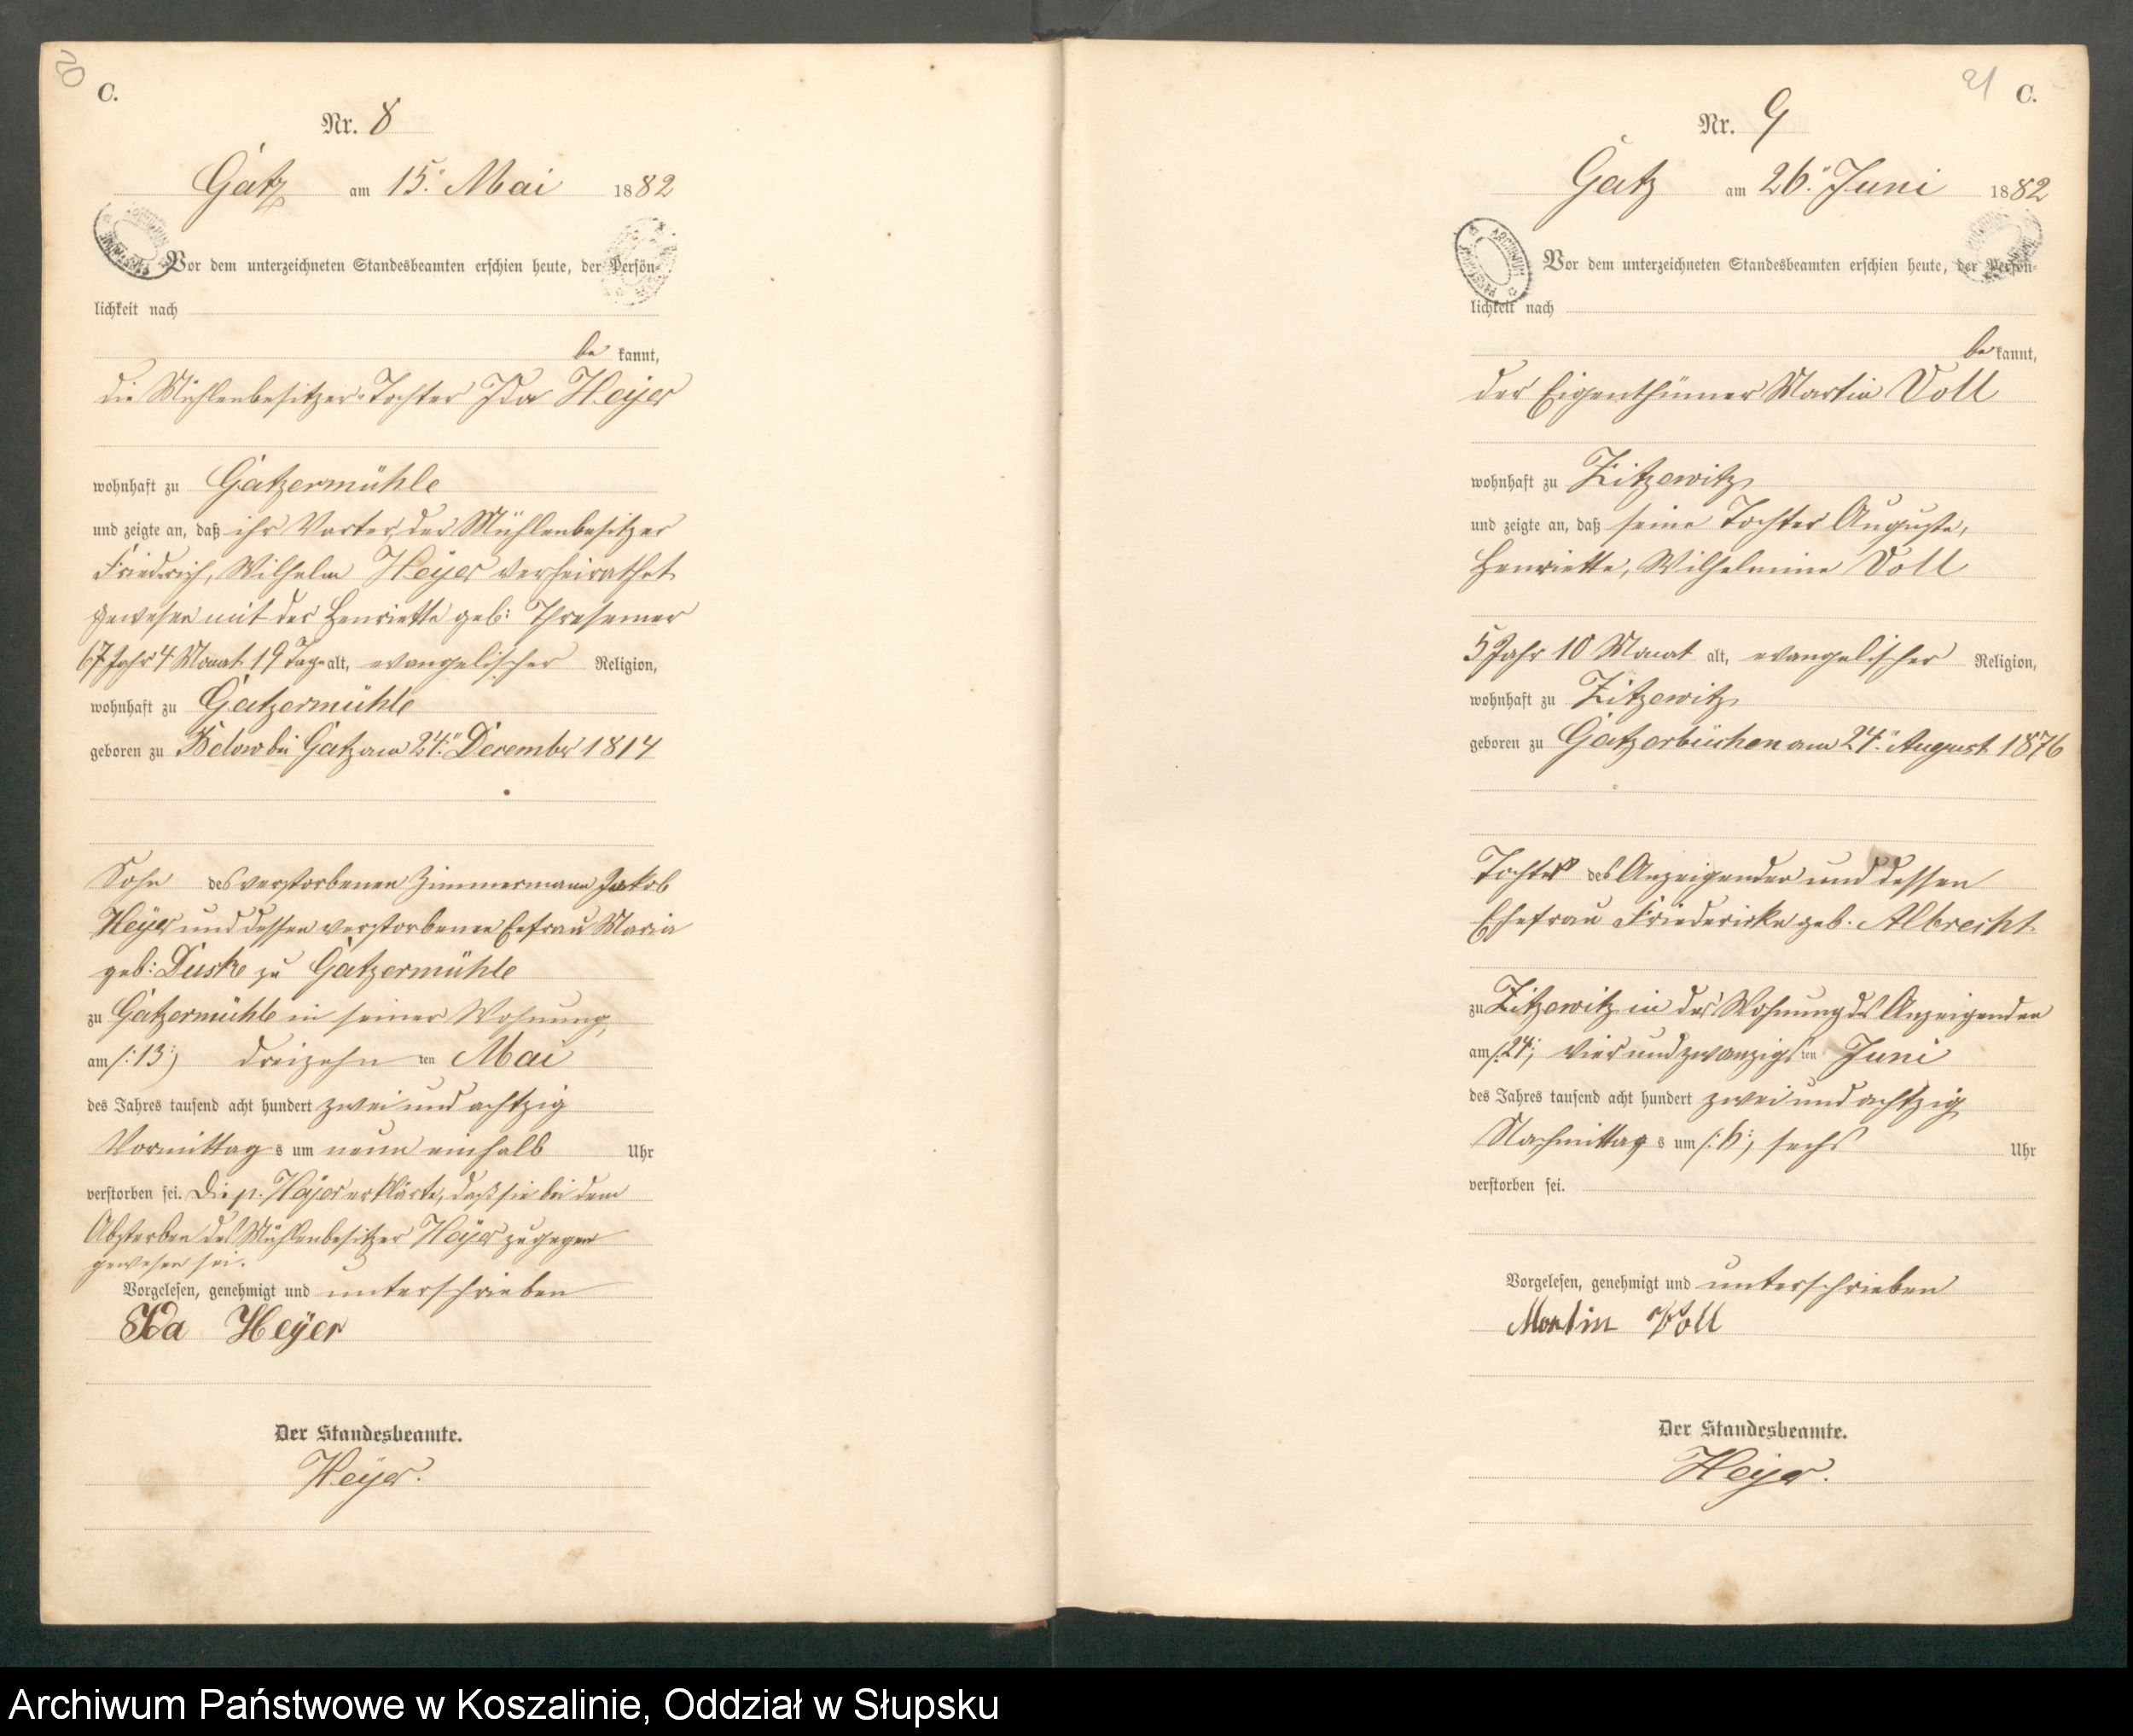 20
C.
Nr. 8
Gatz am 15. Mai 1882
Vor dem unterzeichneten Standesbeamten erschien heute, der Persön-
lichkeit nach
be kannt,
die Mühlenbesitzer-Tochter Ida Heyer
wohnhaft zu Gatzermühle
und zeigte an, daß ihr Vater, der Mühlenbesitzer
Friedrich, Wilhelm Heyer verheirathet
gewesen mit der Henriette geb: Thresemer
67 Jahr 4 Monat 19 Tage alt, evangelischer Religion,
wohnhaft zu Gatzermühle
geboren zu Below bei Gatz am 24. December 1814
Sohn des verstorbenen Zimmermann Jakob
Heyer und dessen verstorbenen Eefrau Maria
geb: Duske zu Gatzermühle
zu Gatzermühle in seiner Wohnung,
am /:13:/ dreizehn ten Mai
des Jahres tausend acht hundert zwei und achtzig
Vormittag s um neun einhalb Uhr
verstorben sei. Die p. Heyer erklärte, daß sie bei dem
Absterben des Mühlenbesitzer Heyer zugegen
gewesen sei.
Vorgelesen, genehmigt und unterschrieben
Ida Heÿer
Der Standesbeamte.
Heyer.
21
C.
Nr. 9
Gatz am 26. Juni 1882
Vor dem unterzeichneten Standesbeamten erschien heute, der Persön-
lichkeit nach
be kannt,
der Eigenthümer Martin Voll
wohnhaft zu Zitzewitz
und zeigte an, daß seine Tochter Auguste,
Henriette, Wilhelmine Voll
5 Jahr 10 Monat alt, evangelischer Religion,
wohnhaft zu Zitzewitz
geboren zu Gatzerbüchen am 24. August 1876
Tochter des Anzeigender und dessen
Ehefrau Friedericke geb. Albrecht
zu Zitzewitz in der Wohnung des Anzeigenden
am /:24:/ vier und zwanzigs ten Juni
des Jahres tausend acht hundert zwei und achtzig
Nachmittag s um /:6:/ sechs Uhr
verstorben sei.
Vorgelesen, genehmigt und unterschrieben
Martin Voll
Der Standesbeamte.
Heyer.
Archiwum Państwowe w Koszalinie, Oddział w Słupsku